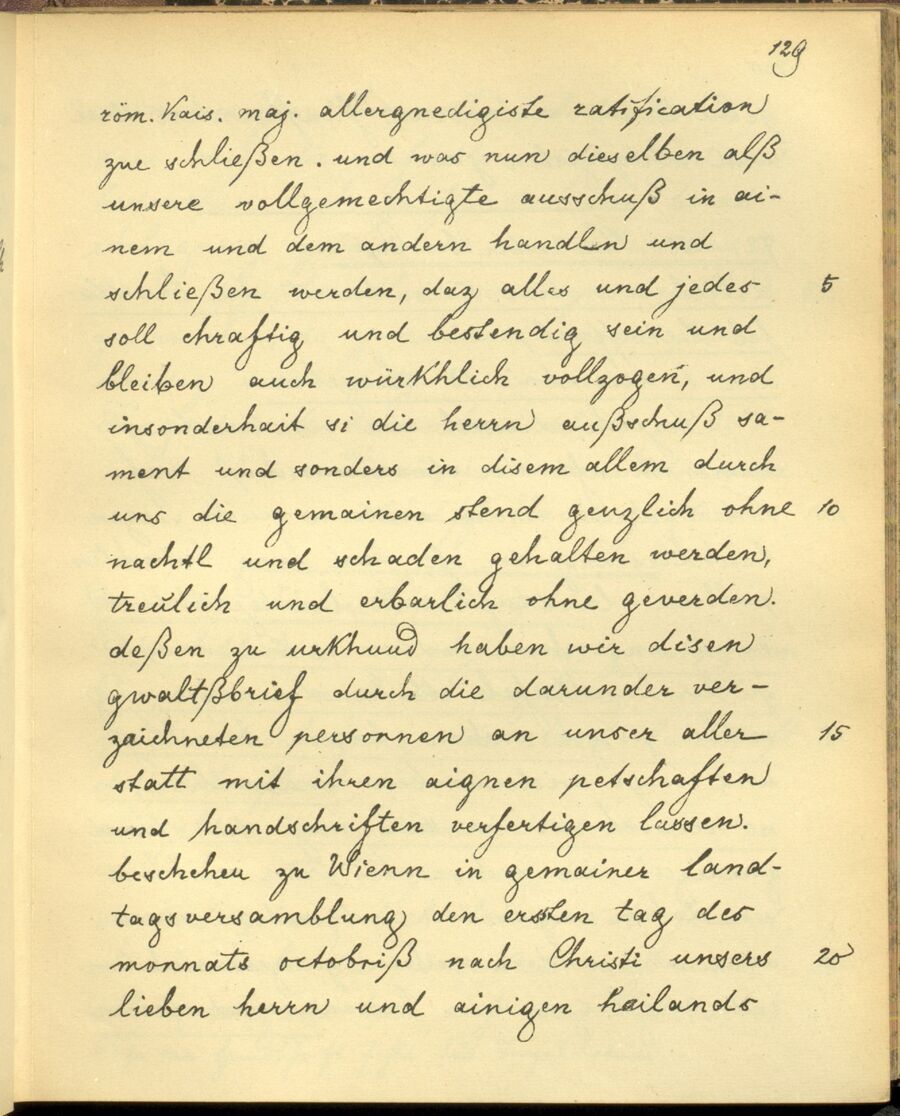 129
röm. Kais. maj. allergnedigiste ratification
zue schließen. und was nun dieselben alß
unsere vollgemechtigte ausschuß in ai-
nem und dem andern handlen und
schließen werden, daz alles und jedes 5
soll chraftig und bestendig sein und
bleiben auch würkhlich vollzogen, und
insonderhait si die herrn außschuß sa-
ment und sonders in disem allem durch
uns die gemainen stend genzlich ohne 10
nachtl und schaden gehalten werden,
treulich und erbarlich ohne geverden.
deßen zu urkhund haben wir disen
gwaltßbrief durch die darunder ver-
zaichneten personnen an unser aller 15
statt mit ihren aignen petschaften
und handschriften verfertigen lassen.
beschehen zu Wienn in gemainer land-
tagsversamblung den ersten tag des
monnats octobriß nach Christi unsers 20
lieben herrn und ainigen hailands